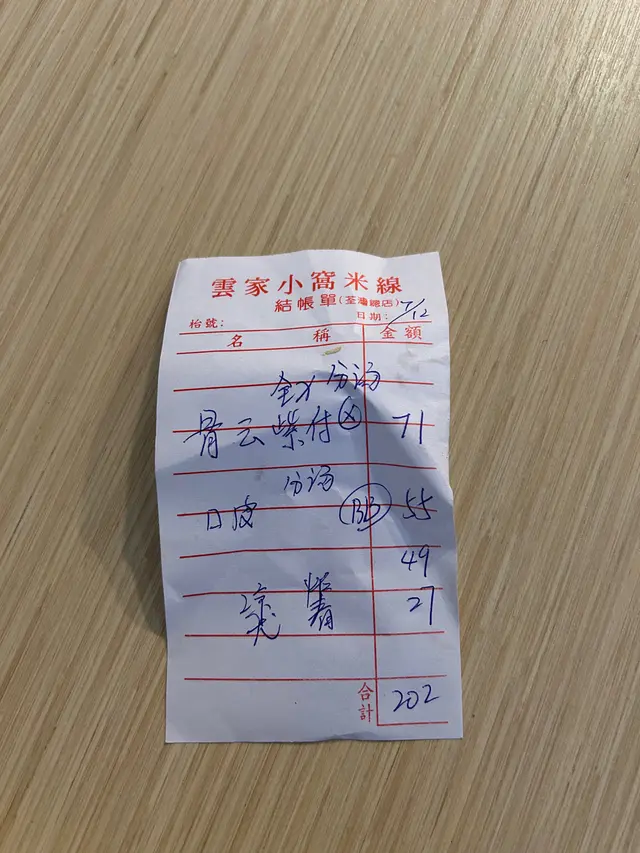 雲家小窩米線
結帳單(荃灣總店)
枱號: 日期: 7/12
名稱 金額
分汤
骨云紫付 71
分汤
口皮 BB 55
49
27
合計 202